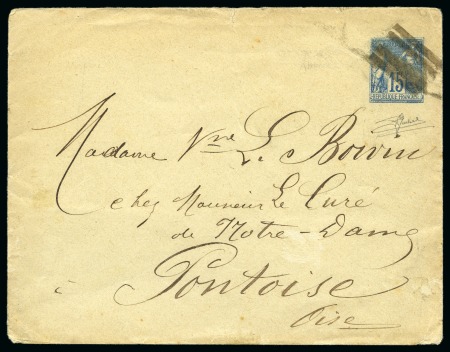 15
REPUBLIQUE FRANCAISE
Madame Vve L. Boivin
chez Monsieur Le Curé
de Notre-Dame
à Pontoise
Oise